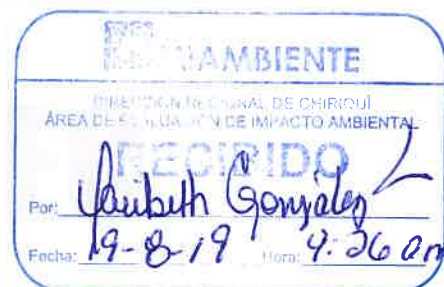 MIAMBIENTE
DIRECCIÓN REGIONAL DE CHIRIQUÍ
ÁREA DE EVALUACIÓN DE IMPACTO AMBIENTAL
RECIBIDO
Por: Yaribeth González
Fecha: 19-8-19 Hora: 9:26 am